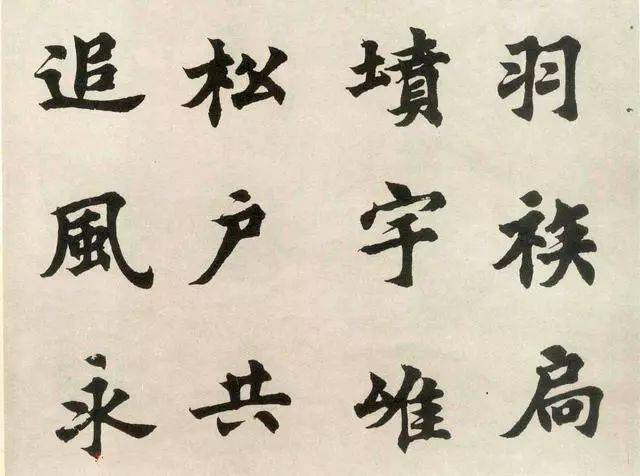 羽族扃
墳宇唯
松户共
追風永